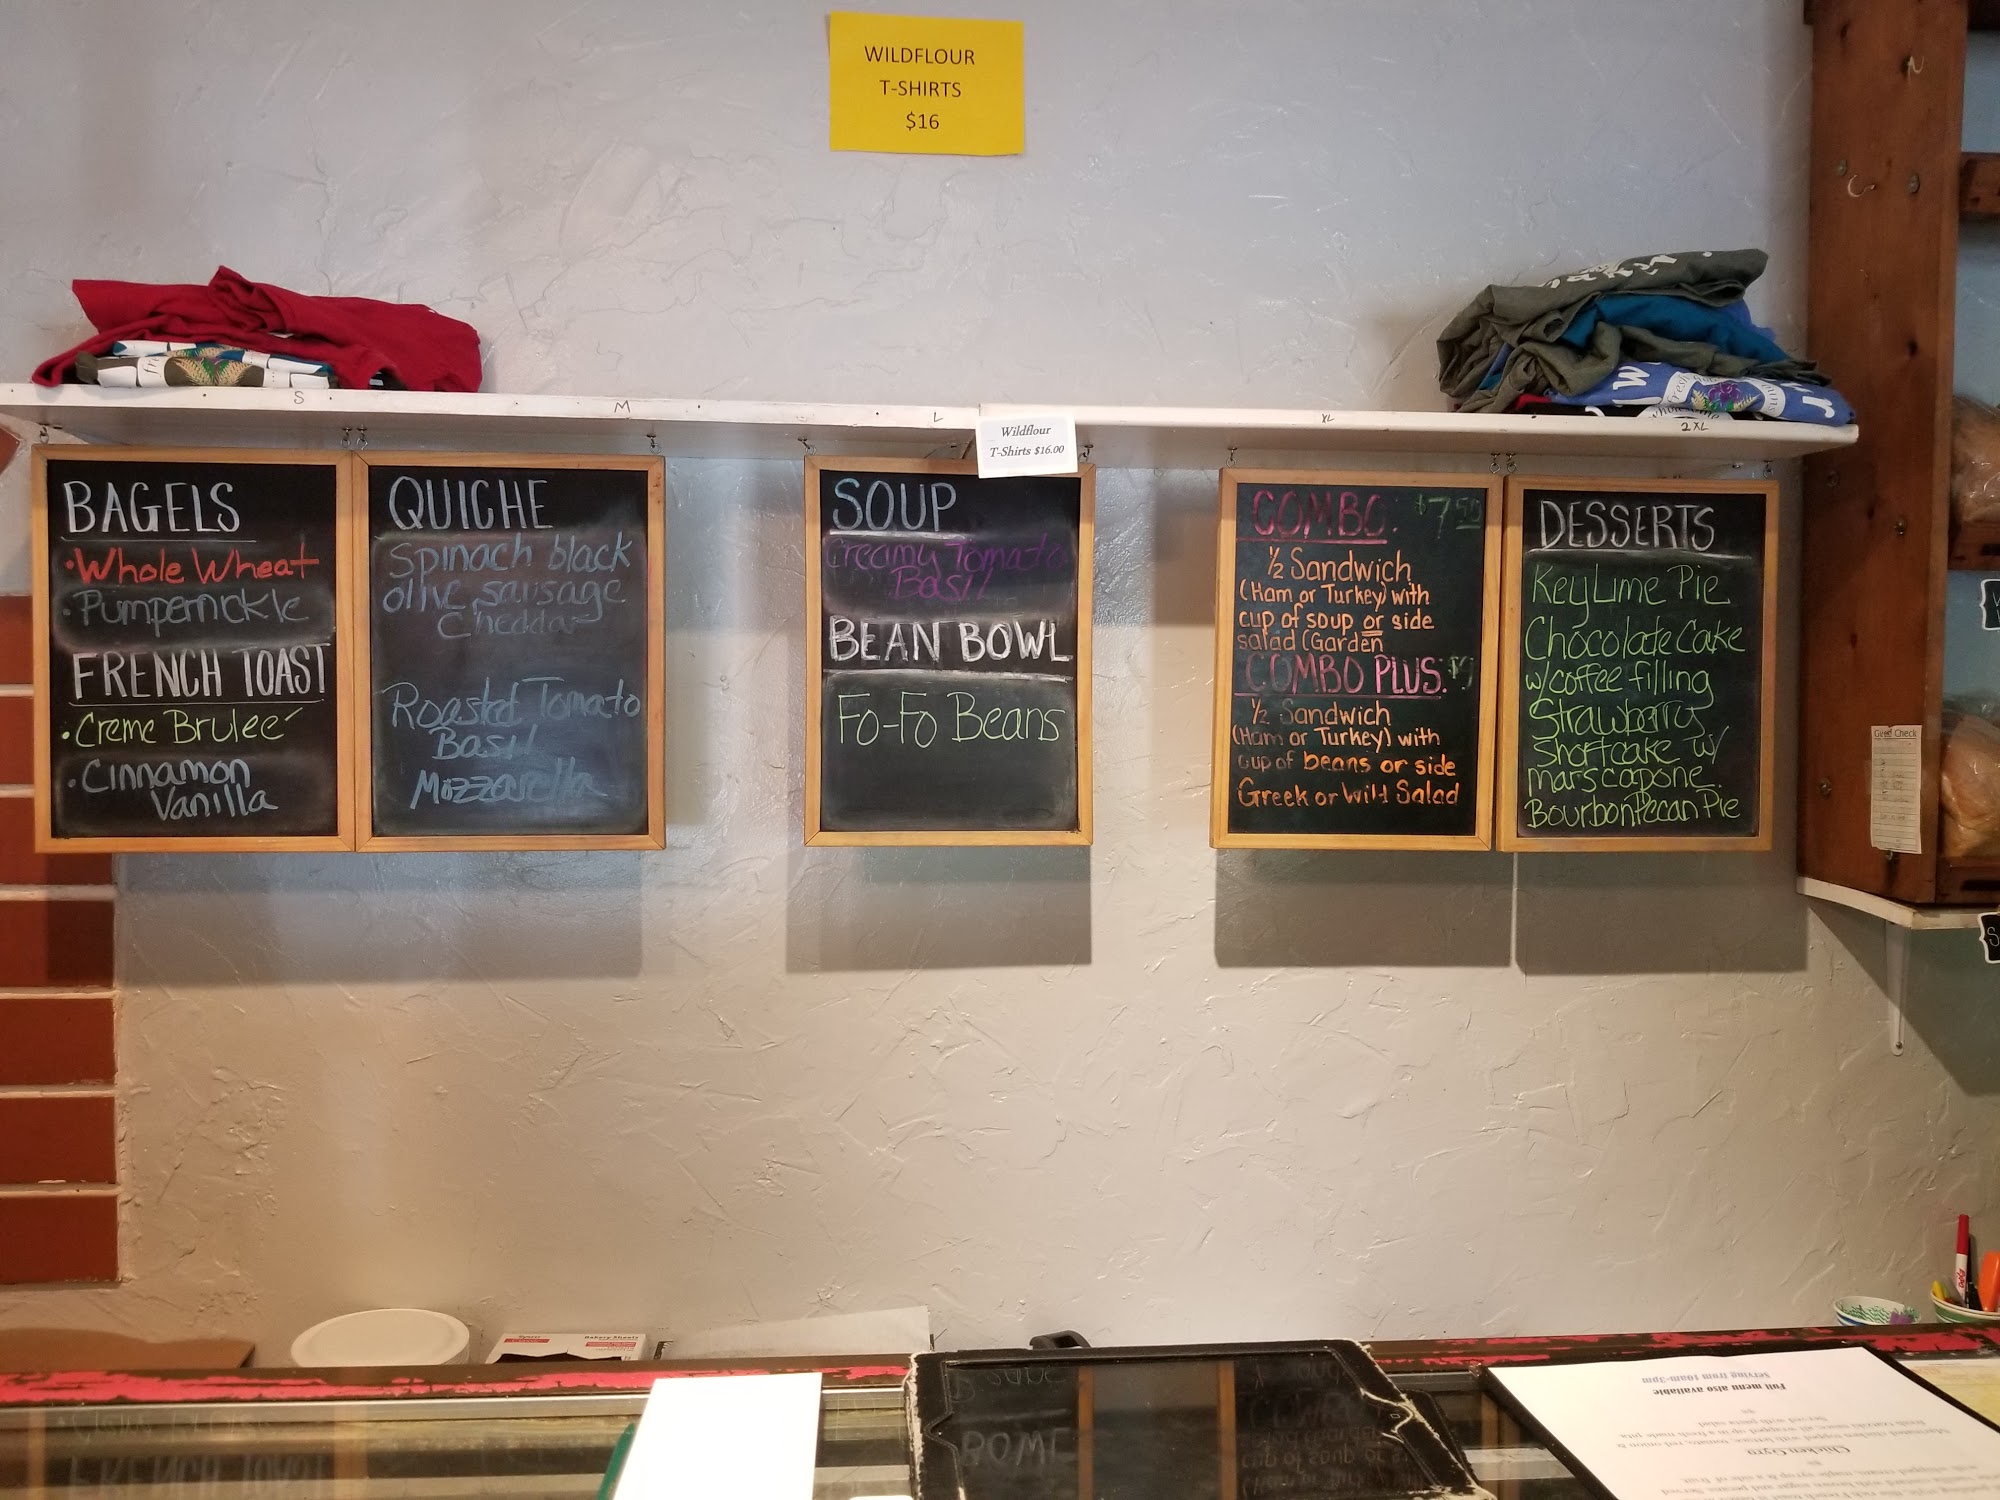 WILDFLOUR
T-SHIRTS
$16
S
M
L
XL
2XL
Wildflour
T-Shirts $16.00
BAGELS
• Whole Wheat
• Pumpernickle
FRENCH TOAST
• Creme Bruleé
• Cinnamon
Vanilla
QUICHE
Spinach black
olive sausage
Cheddar
Roasted Tomato
Basil
Mozzarella
SOUP
Creamy Tomato
Basil
BEAN BOWL
Fo-Fo Beans
COMBO: $7.50
½ Sandwich
(Ham or Turkey) with
cup of soup or side
salad (Garden
COMBO PLUS: $9
½ Sandwich
(Ham or Turkey) with
cup of beans or side
Greek or Wild Salad
DESSERTS
Key Lime Pie
Chocolate Cake
w/coffee filling
Strawberry
shortcake w/
marscapone
Bourbon Pecan Pie
Guest Check
Bakery Sheets
Full menu also available
Serving from 10am-3pm
Chicken Gyro